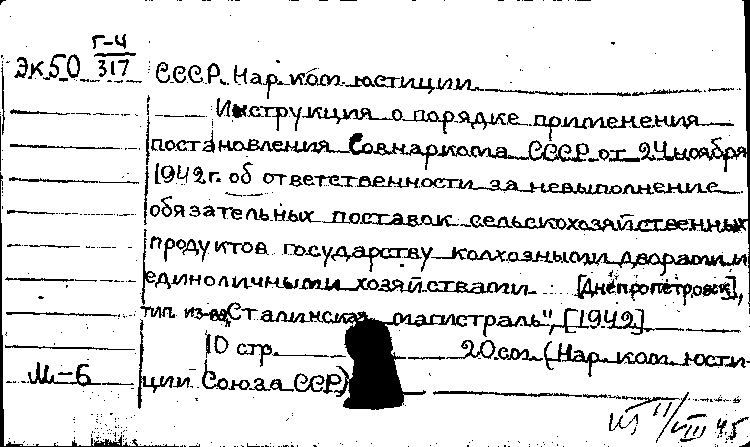 Г-4
ЭК50 317 СССР. Нар. ком. юстиции.
Инструкция о порядке применения
постановления Совнаркома СССР от 24 ноября
1942 г. об ответственности за невыполнение
обязательных поставок сельскохозяйственных
продуктов государству колхозными дворами и
единоличными хозяйствами. [Днепропетровск],
тип. из-ва "Сталинская магистраль", [1942].
10 стр. 20 см. (Нар. ком. юсти-
М-6 ции Союза ССР)
11/VIII 45